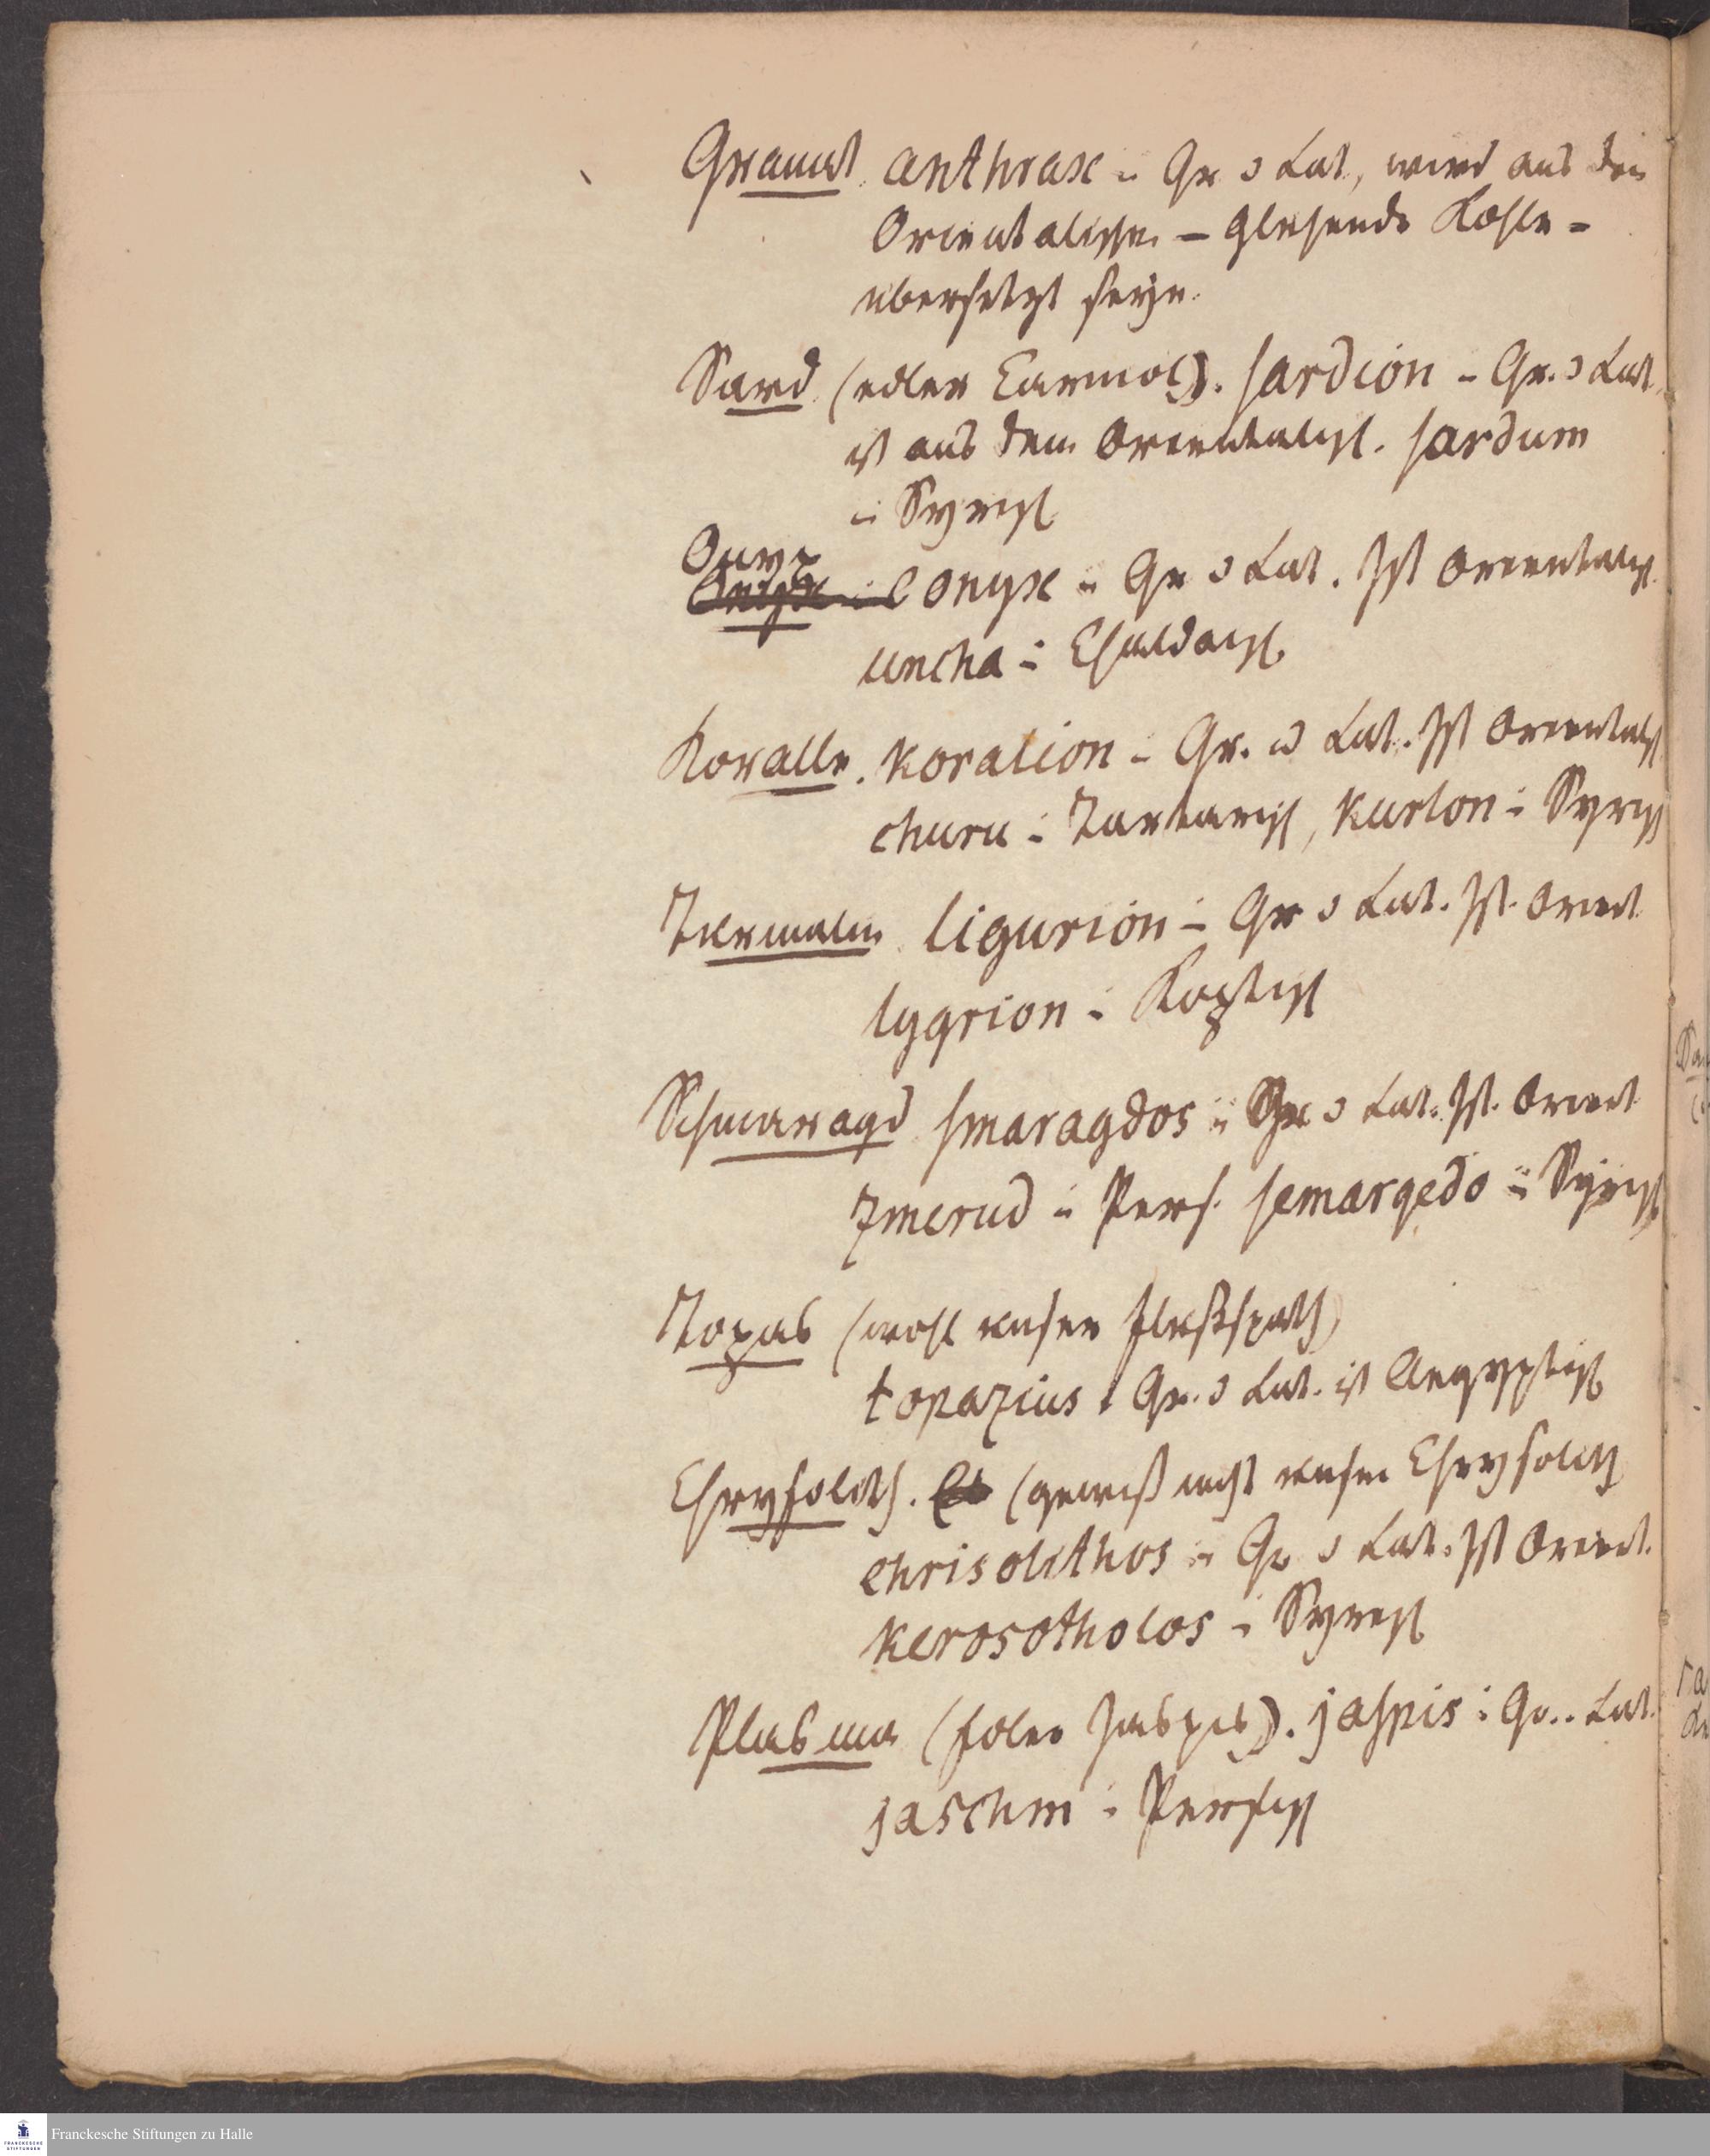 Granat anthrax i. Gr u Lat, wird aus dem
Orientalischen – glühende Kohle –
übersetzt seyn.
Sard (edler Carniol). sardion – Gr. u Lat.
ist aus dem Orientalisch. sardum
i. Syrisch
Onyx
onyx i. Gr u Lat. Ist Orientalisch.
uncha i. Chaldäisch.
Koralle. koralion i. Gr. u Lat. Ist Orientalisch
churu i. Tartarisch, kurlon i. Syrisch
Turmalin ligurion i. Gr u Lat. Ist. Orient
lygrion i. Koptisch
Schmaragd smaragdos i. Gr u Lat. Ist. Orient
zmerud i. Pers. semargedo i. Syrisch
Topas (wohl unser Flußspath)
topazius i Gr. u Lat. ist Aegyptisch
Chrysolith. (gewiß nicht unser Chrysolith
chrisolithos i. Gr u Lat. Ist Orient.
kerosotholos i. Syrisch
Plasma (edler Jaspis). jaspis i. Gr. Lat.
jaschm i. Persisch
Franckesche Stiftungen zu Halle
FRANCKESCHE STIFTUNGEN